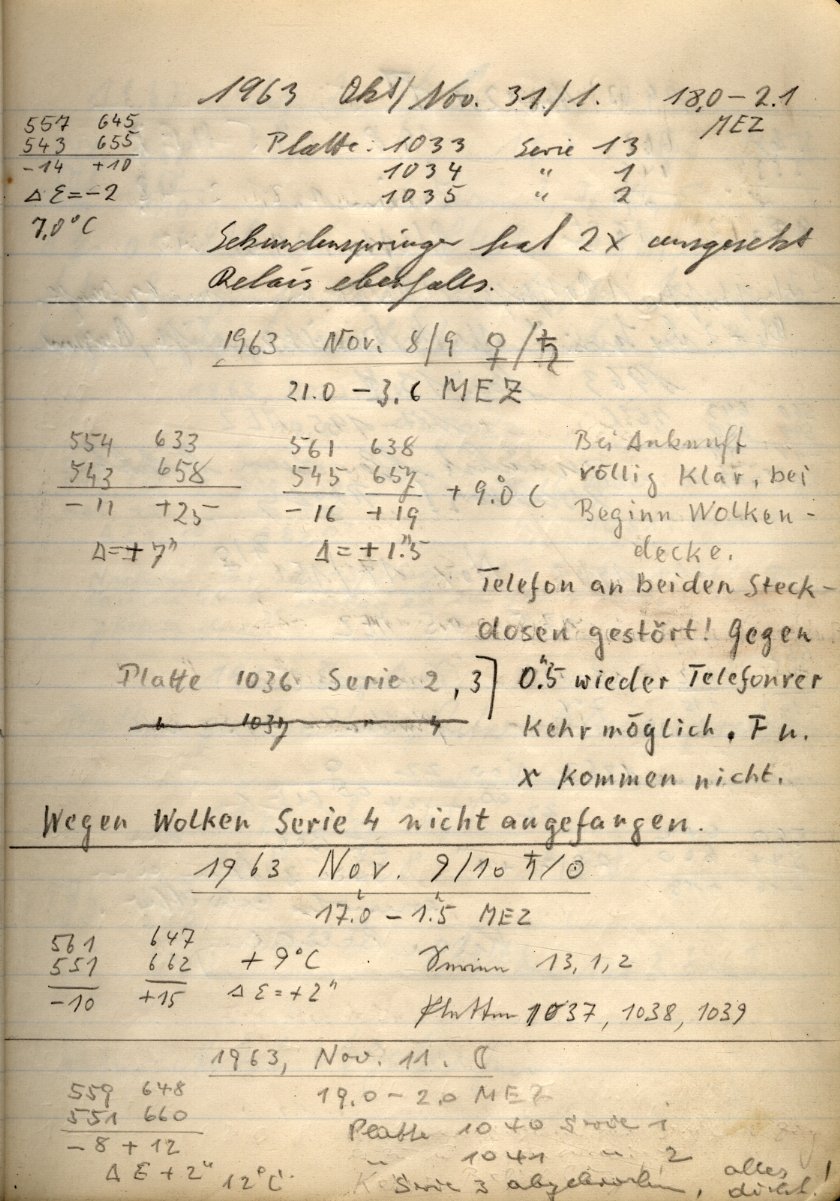 1963 Okt/Nov. 31./1. 18.0 – 2.1
MEZ
557 645
543 655
-14 +10
Δ E = -2
7,0°C
Platte: 1033 Serie 13
1034 " 1
1035 " 2
Sekundenspringer hat 2x ausgesetzt
Relais ebenfalls.
1963 Nov. 8/9 ♀/♄
21.0 – 3.6 MEZ
554 633
543 658
-11 +25
Δ=+7"
561 638
545 657
-16 +19
Δ=+1."5
+9.°0 C
Bei Ankunft
völlig Klar, bei
Beginn Wolken-
decke.
Telefon an beiden Steck-
dosen gestört! Gegen
0.h5 wieder Telefonver
Kehr möglich. F u.
x Kommen nicht.
Platte 1036 Serie 2, 3
" 1037 " 4
Wegen Wolken Serie 4 nicht angefangen.
1963 Nov. 9/10 ♄/☉
17.h0 – 1.h5 MEZ
561 647
551 662
-10 +15
+9°C
Δ E = +2"
Serien 13, 1, 2
Platten 1037, 1038, 1039
1963, Nov. 11. ☾
19.0 – 2.0 MEZ
559 648
551 660
-8 +12
Δ E + 2"
12°C
Platte 1040 Serie 1
" 1041 " 2
Serie 3 abgebrochen, alles
dicht!